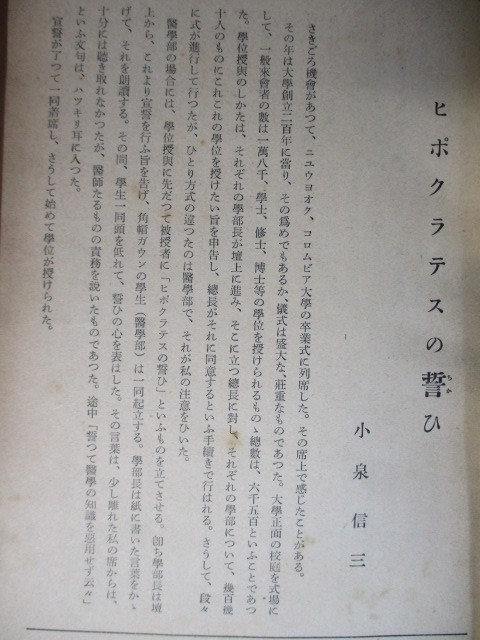 ヒポクラテスの誓ひ
ちか
小泉信三
さきごろ機會があつて、ニユウヨオク、コロムビア大學の卒業式に列席した。その席上で感じたことがある。
その年は大學創立二百年に當り、その爲めでもあるか、儀式は盛大な、莊重なものであつた。大學正面の校庭を式場に
して、一般來會者の數は一萬八千、學士、修士、博士等の學位を授けられるものゝ總數は、六千五百といふことであつ
た。學位授與のしかたは、それぞれの學部長が壇上に進み、そこに立つ總長に對し、それぞれの學部について、幾百幾
十人のものにこれこれの學位を授けたい旨を申告し、總長がそれに同意するといふ手續きで行はれる。さうして、段々
に式が進行して行つたが、ひとり方式の違つたのは醫學部で、それが私の注意をひいた。
醫學部の場合には、學位授與に先だつて被授者に「ヒポクラテスの誓ひ」といふものを立てさせる。卽ち學部長は壇
上から、これより宣誓を行ふ旨を告げ、角帽ガウンの學生（醫學部）は一同起立する。學部長は紙に書いた言葉をかゝ
げて、それを朗讀する。その間、學生一同頭を低れて、誓ひの心を表はした。その言葉は、少し離れた私の席からは、
十分には聽き取れなかつたが、醫師たるものの責務を說いたものであつた。途中「誓つて醫學の知識を惡用せず云々」
といふ文句は、ハツキリ耳に入つた。
宣誓が了つて一同着席し、さうして始めて學位が授けられた。